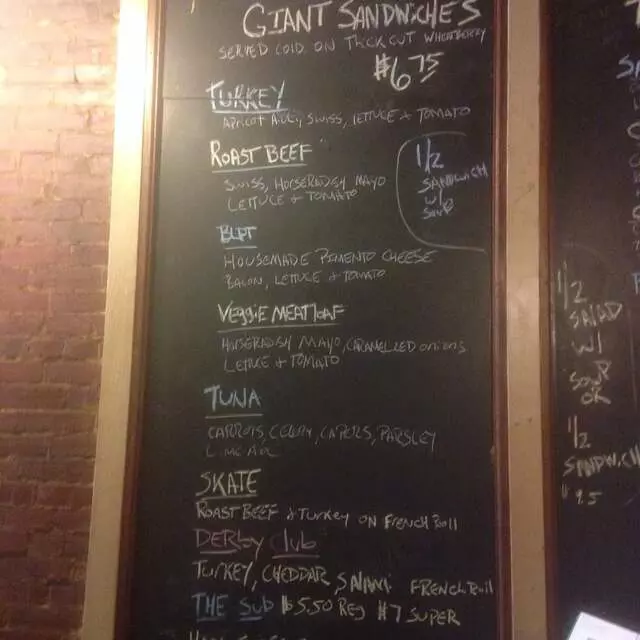 GIANT SANDWICHES
SERVED COLD ON THICK CUT WHEATBERRY
$6.75
TURKEY
APRICOT AIOLI, SWISS, LETTUCE & TOMATO
ROAST BEEF
SWISS, HORSERADISH MAYO
LETTUCE & TOMATO
1/2
SANDWICH
W/
SOUP
BLT
HOUSEMADE PIMENTO CHEESE
BACON, LETTUCE & TOMATO
VEGGIE MEATLOAF
HORSERADISH MAYO, CARAMELIZED ONIONS
LETTUCE & TOMATO
TUNA
CARROTS, CELERY, CAPERS, PARSLEY
SKATE
ROAST BEEF & TURKEY ON FRENCH ROLL
DERBY CLUB
TURKEY, CHEDDAR, SALAMI FRENCH ROLL
THE SUB $5.50 REG $7 SUPER
1/2
SALAD
W/
SOUP
OR
1/2
SANDWICH